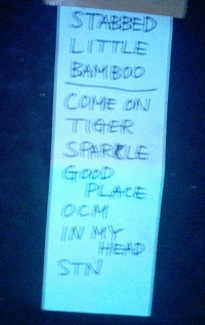 STABBED
LITTLE
BAMBOO
COME ON
TIGER
SPARKLE
GOOD
PLACE
OCM
IN MY
HEAD
STN